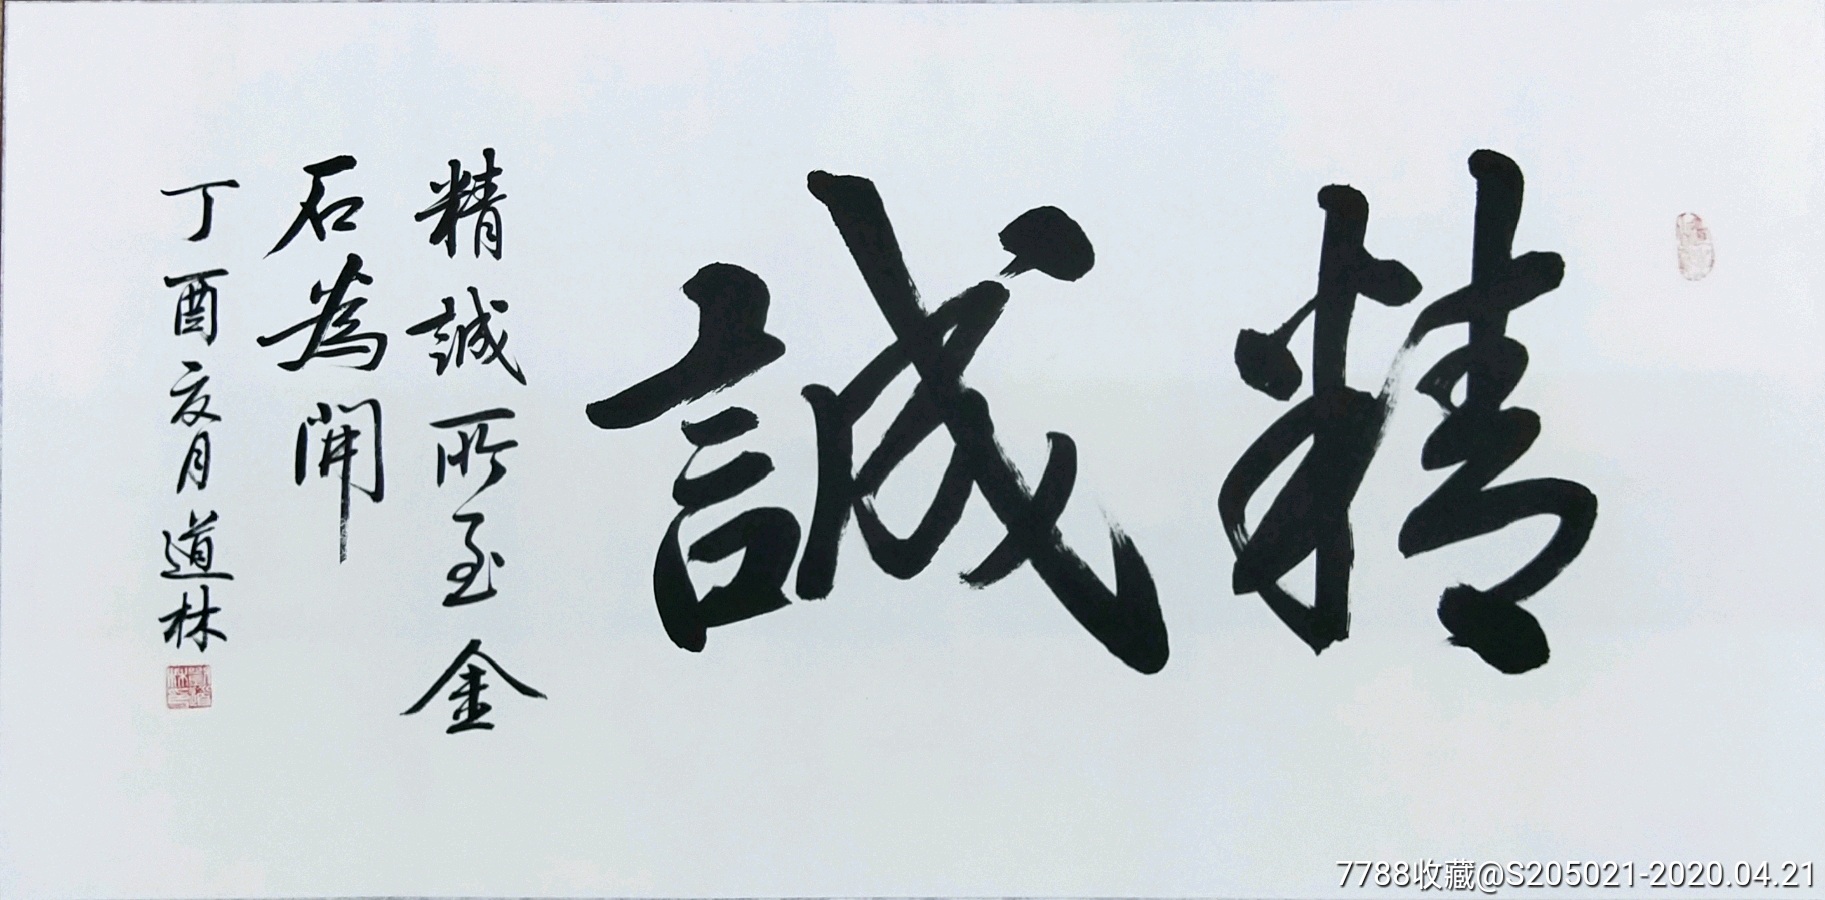 精誠
精誠所至金
石為開
丁酉夏月道林
7788收藏@S205021-2020.04.21